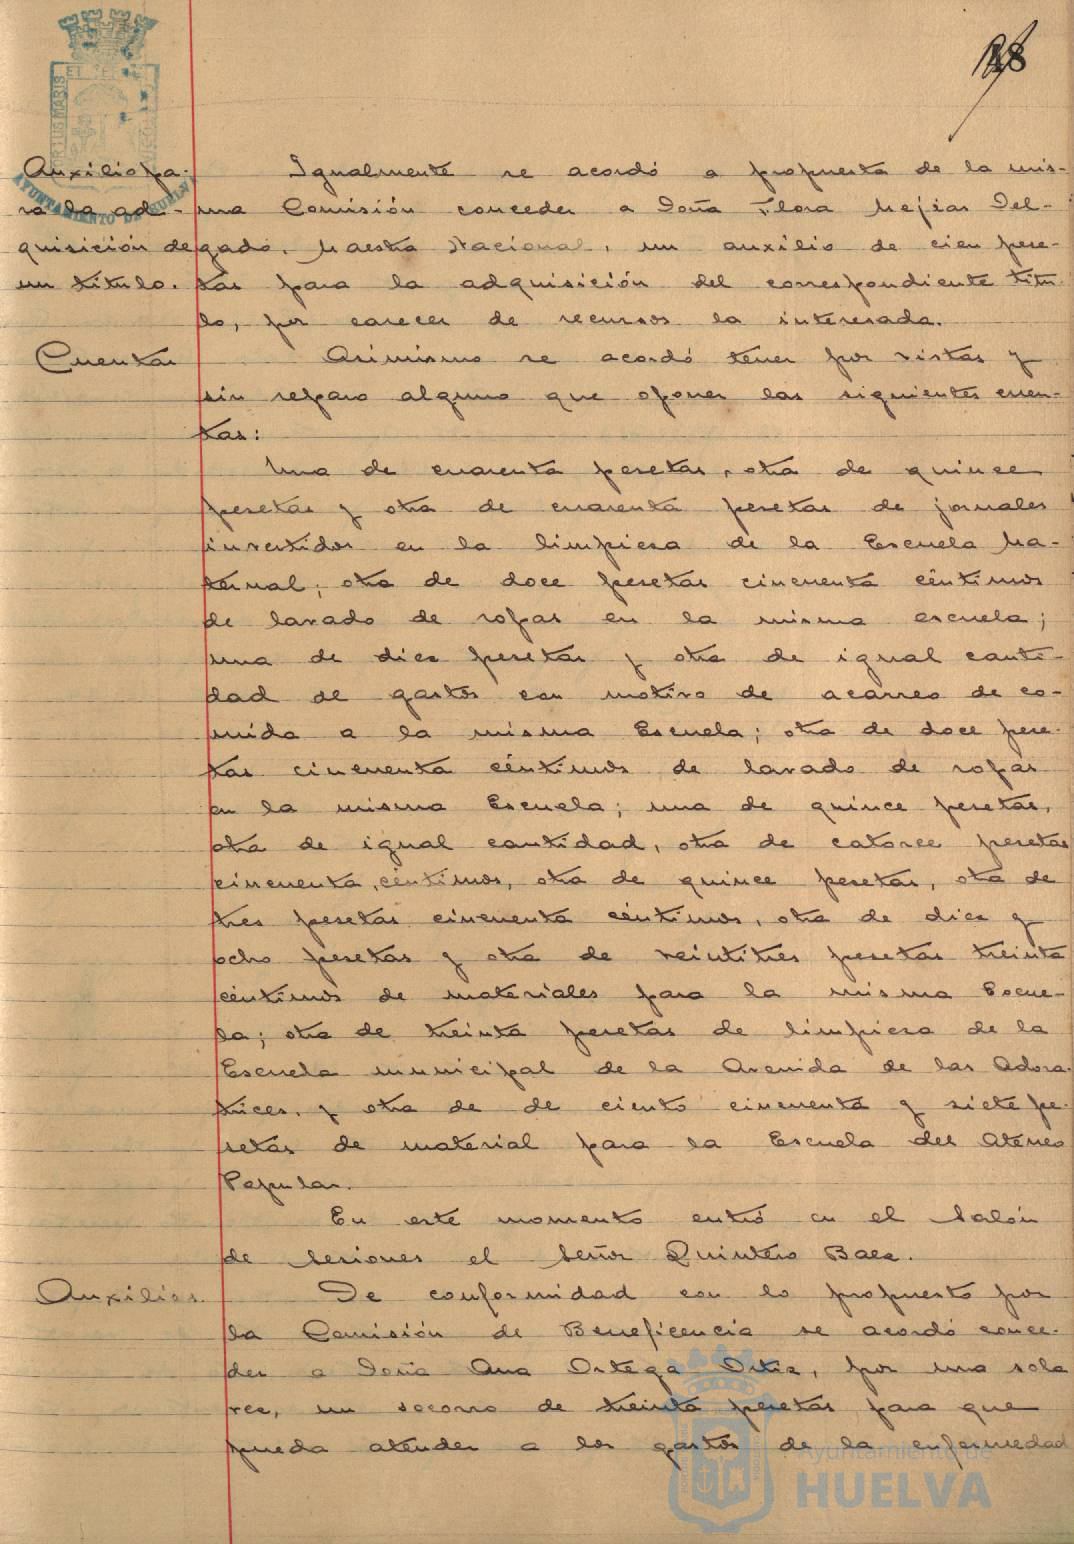 18
Auxilio pa-
ra la ad-
quisición de
un título.
Igualmente se acordó a propuesta de la mis-
ma Comisión conceder a Doña Flora Mejias Del-
gado, Maestra Nacional, un auxilio de cien pese-
tas para la adquisición del correspondiente títu-
lo, por carecer de recursos la interesada.
Cuentas
Asimismo se acordó tener por vistas y
sin reparo alguno que oponer las siguientes cuen-
tas:
Una de cuarenta pesetas, otra de quince
pesetas y otra de cuarenta pesetas de jornales
invertidos en la limpieza de la Escuela Ma-
ternal; otra de doce pesetas cincuenta céntimos
de lavado de ropas en la misma escuela;
una de diez pesetas y otra de igual canti-
dad de gastos con motivo de acarreo de co-
mida a la misma Escuela; otra de doce pese-
tas cincuenta céntimos de lavado de ropas
en la misma Escuela; una de quince pesetas,
otra de igual cantidad, otra de catorce pesetas
cincuenta céntimos, otra de quince pesetas, otra de
tres pesetas cincuenta céntimos, otra de diez y
ocho pesetas y otra de veintitres pesetas treinta
céntimos de materiales para la misma Escue-
la; otra de treinta pesetas de limpieza de la
Escuela municipal de la Avenida de las Adora-
trices, y otra de de ciento cincuenta y siete pe-
setas de material para la Escuela del Ateneo
Popular.
En este momento entró en el Salón
de sesiones el Señor Quintero Baez.
Auxilios.
De conformidad con lo propuesto por
la Comisión de Beneficencia se acordó conce-
der a Doña Ana Ortega Ortiz, por una sola
vez, un socorro de treinta pesetas para que
pueda atender a los gastos de la enfermedad
AYUNTAMIENTO DE HUELVA
Ayuntamiento de
HUELVA